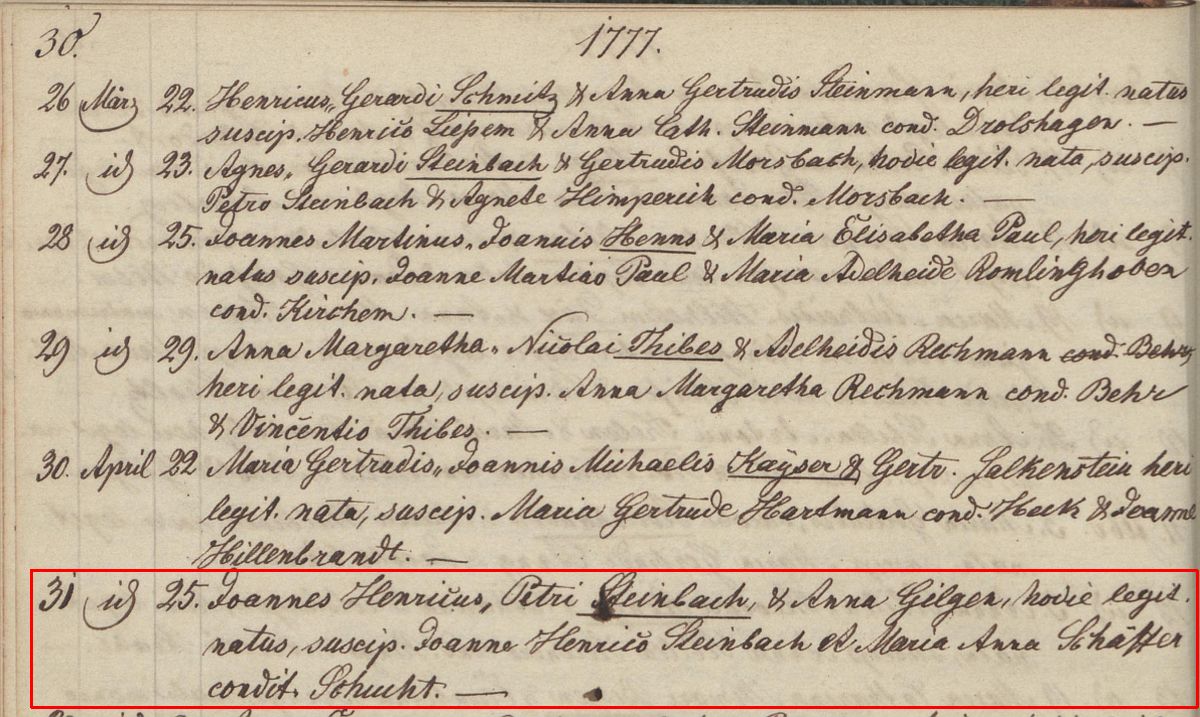 30. 1777.
26 März 22. Henricus, Gerardi Schmitz & Anna Gertrudis Steinmann, heri legit. natus
suscip. Henrico Liesem & Anna Cath. Steinmann cond. Drolshagen. —
27. id 23. Agnes, Gerardi Steinbach & Gertrudis Morsbach, hodie legit. nata, suscip.
Petro Steinbach & Agnete Himperich cond. Morsbach. —
28 id 25. Joannes Martinus, Joannis Henns & Maria Elisabetha Paul, heri legit.
natus suscip. Joanne Martino Paul & Maria Adelheide Romlinghoven
cond. Kirchem. —
29 id 29. Anna Margaretha, Nicolai Thibes & Adelheidis Rechmann cond. Behr,
heri legit. nata, suscip. Anna Margaretha Rechmann cond. Behr
& Vincentio Thibes. —
30. April 22 Maria Gertrudis, Joannis Michaelis Kaÿser & Gertr. Falkenstein heri
legit. nata, suscip. Maria Gertrude Hartmann cond. Heck & Joanne
Hillenbrandt. —
31 id 25. Joannes Henricus, Petri Steinbach, & Anna Gilgen, hodie legit.
natus, suscip. Joanne Henrico Steinbach et Maria Anna Schäffer
condit. Schucht. —